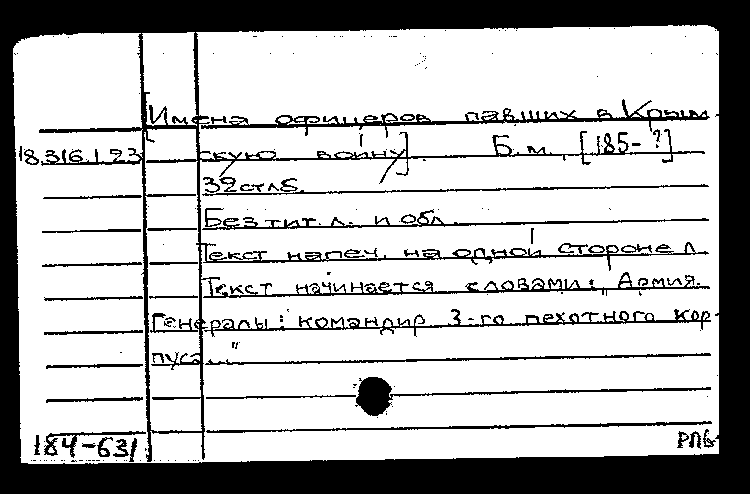 [Имена офицеров павших в Крым-
18.316.1.23 скую войну]. Б.м., [185-?]
32 стлб.
Без тит. л. и обл.
Текст напеч. на одной стороне л.
Текст начинается словами: „Армия.
Генералы: командир 3-го пехотного кор-
пуса..."
184-631 РПБ